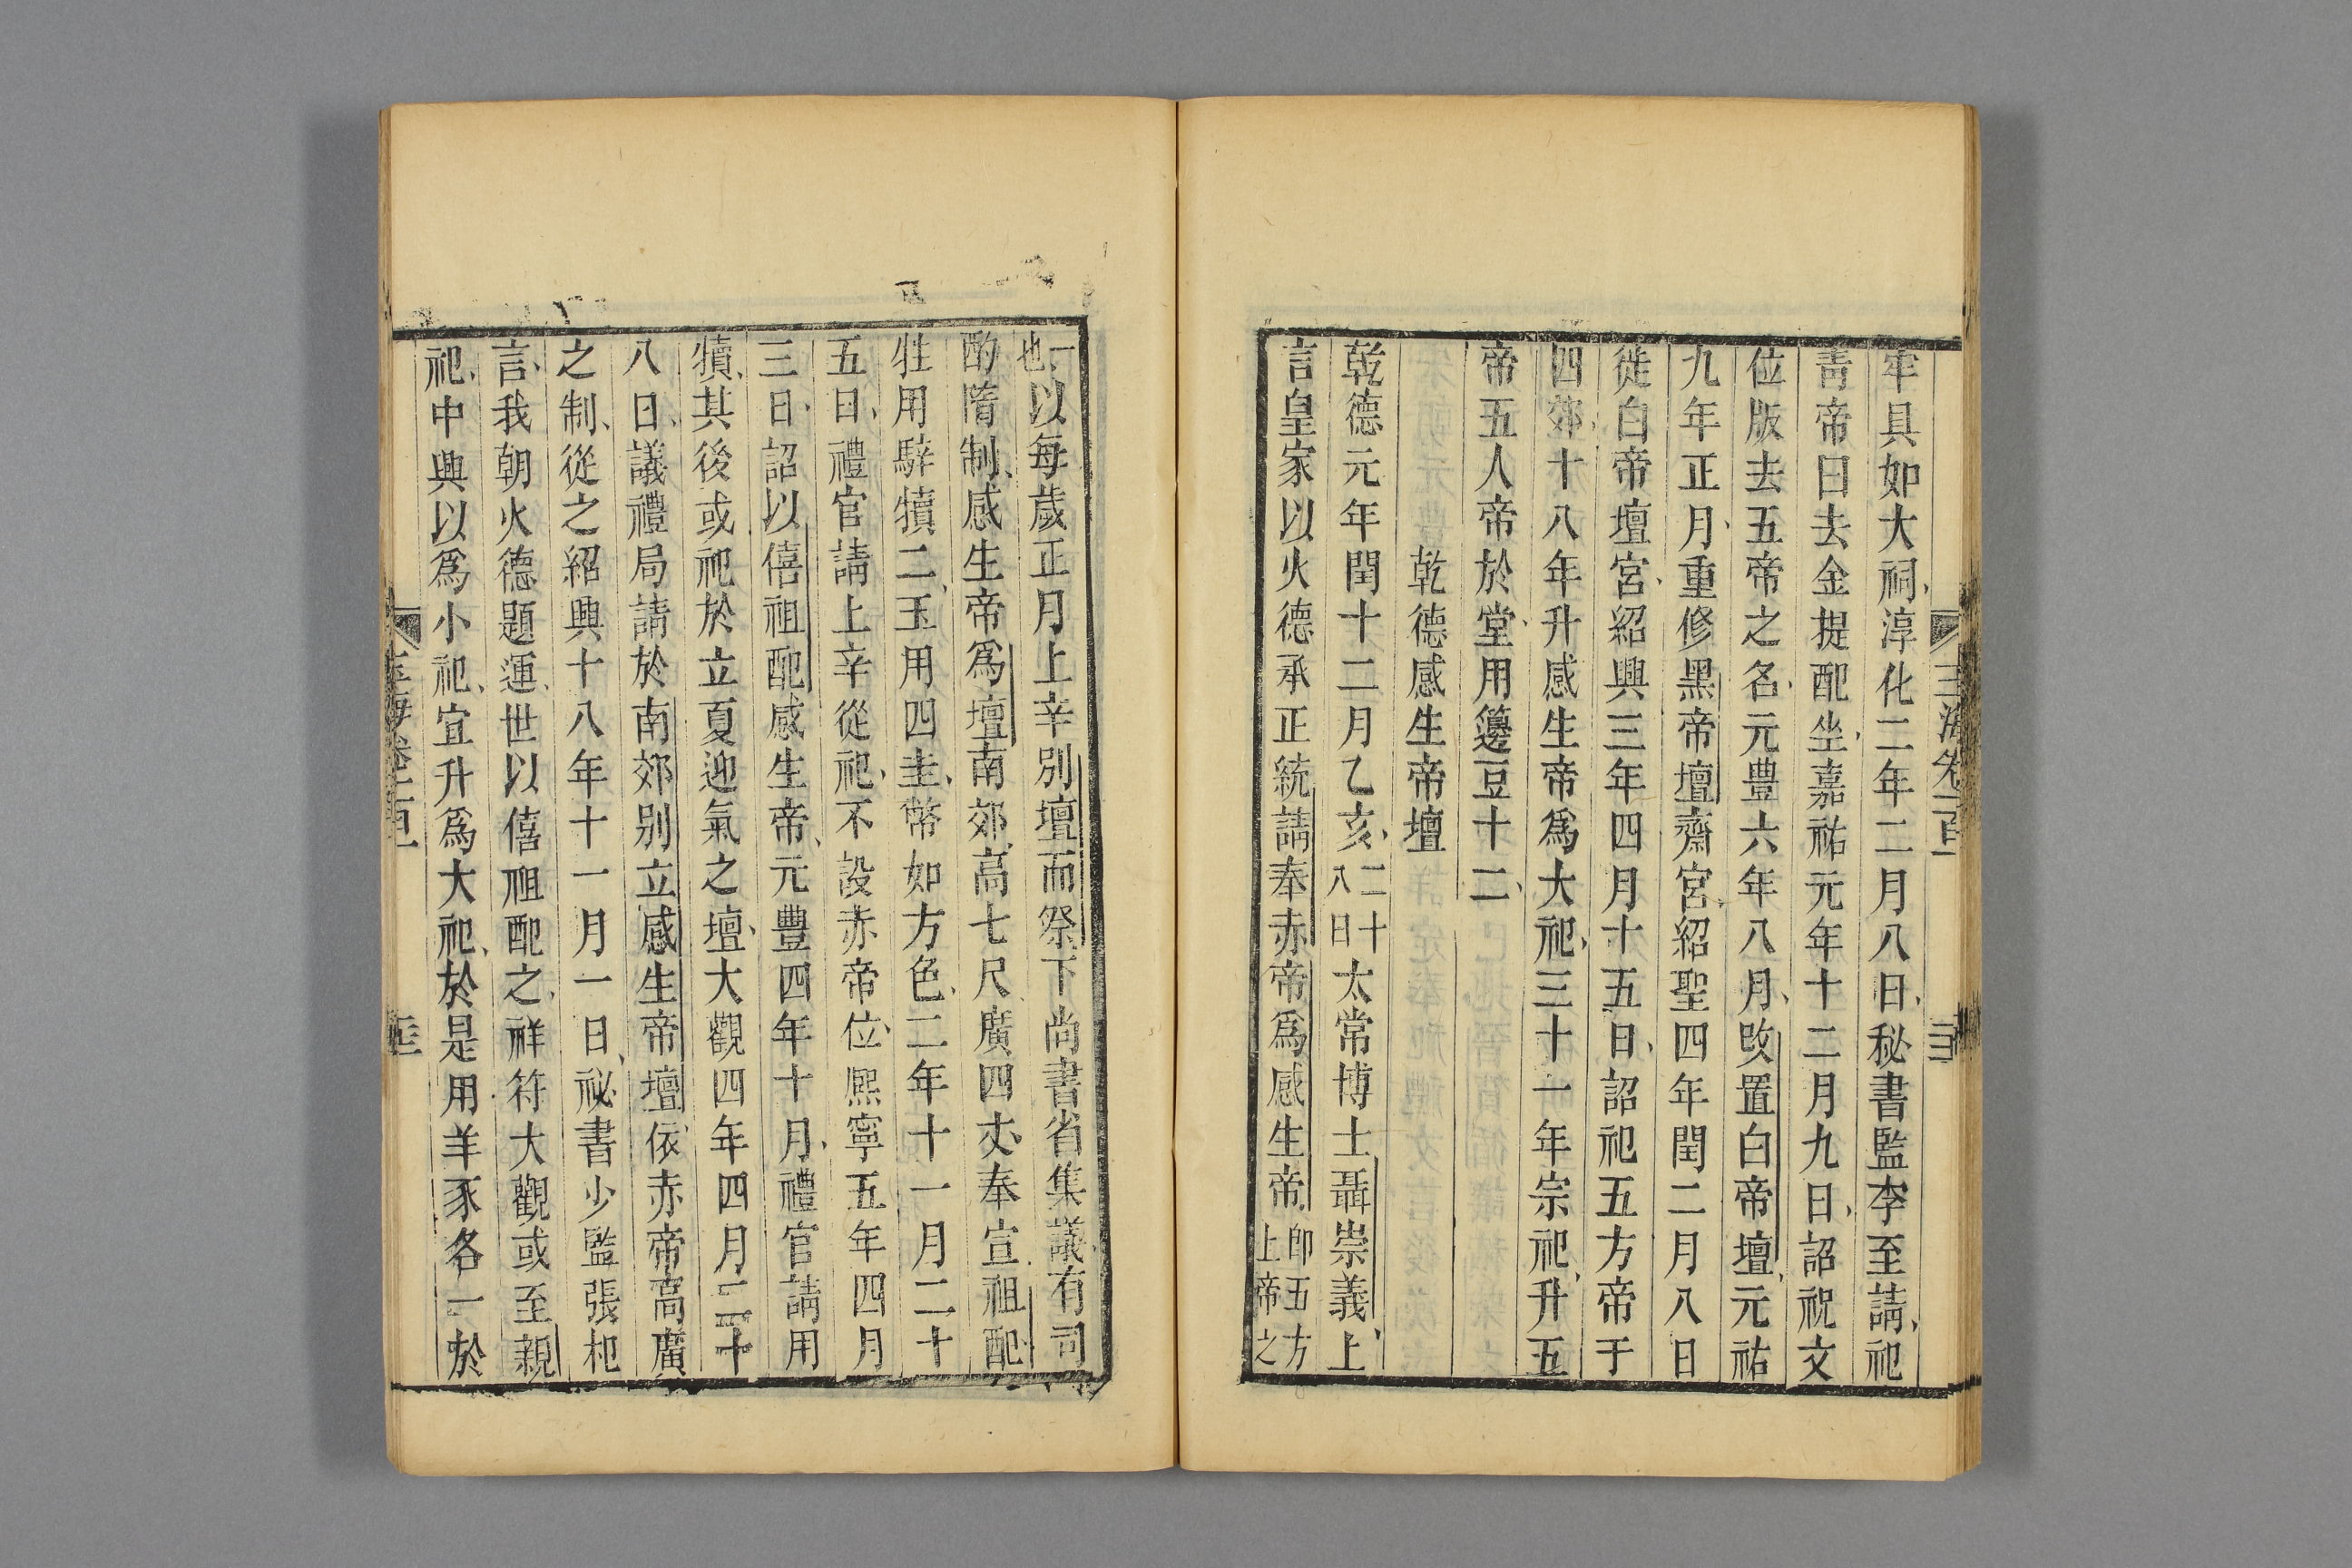 牢具如大祠淳化二年二月八日秘書監李至請祀
青帝曰去金提配坐嘉祐元年十二月九日詔祝文
位版去五帝之名元豐六年八月改置白帝壇元祐
九年正月重修黑帝壇齋宮紹聖四年閏二月八日
徙白帝壇宮紹興三年四月十五日詔祀五方帝于
四郊十八年升感生帝爲大祀三十一年宗祀升五
帝五人帝於堂用籩豆十二
乾德感生帝壇
乾德元年閏十二月乙亥二十八日太常博士聶崇義上
言皇家以火德承正統請奉赤帝爲感生帝卽五方上帝之
一也以每歲正月上辛別壇而祭下尚書省集議有司
酌隋制感生帝爲壇南郊高七尺廣四丈奉宣祖配
牲用騂犢二玉用四圭幣如方色二年十一月二十
五日禮官請上辛從祀不設赤帝位熙寧五年四月
三日詔以僖祖配感生帝元豐四年十月禮官請用
犢其後或祀於立夏迎氣之壇大觀四年四月二十
八日議禮局請於南郊別立感生帝壇依赤帝高廣
之制從之紹興十八年十一月一日祕書少監張杞
言我朝火德題運世以僖祖配之祥符大觀或至親
祀中興以爲小祀宜升爲大祀於是用羊豕各一於
玉海卷一百一